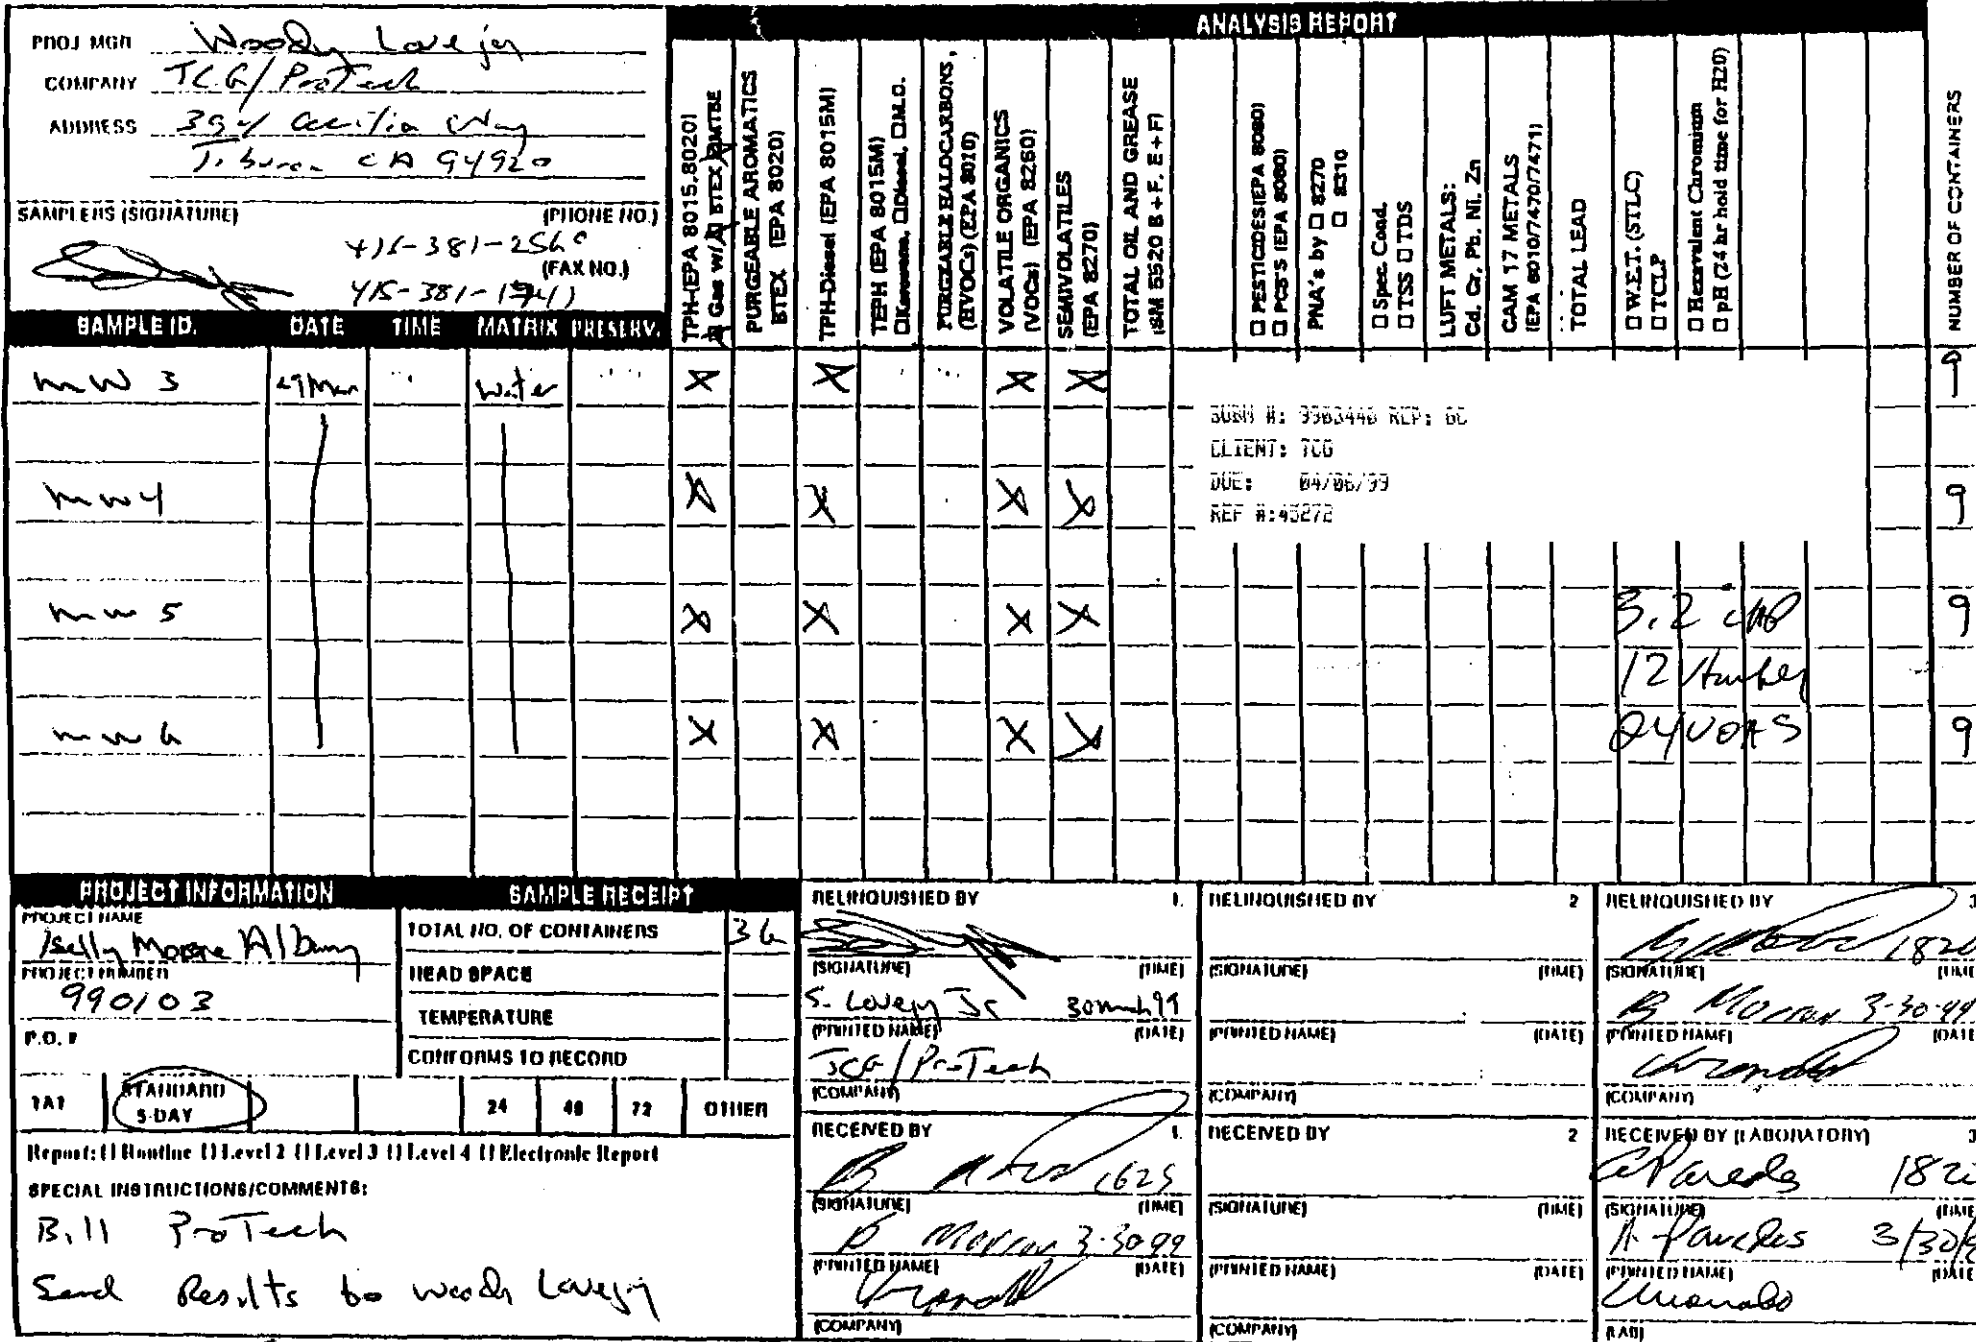 ANALYSIS REPORT
PROJ MGR Woody Lovejoy
COMPANY TCG/ProTech
ADDRESS 394 Cecilia Way
Tiburon CA 94920
SAMPLERS (SIGNATURE) (PHONE NO.)
415-381-2560
(FAX NO.)
415-381-1741
SAMPLE ID. DATE TIME MATRIX PRESERV.
TPH-(EPA 8015,8020)
Gas w/ BTEX MTBE
PURGEABLE AROMATICS
BTEX (EPA 8020)
TPH-Diesel (EPA 8015M)
TEPH (EPA 8015M)
☐Kerosene, ☐Diesel, ☐M.O.
PURGEABLE HALOCARBONS,
(HVOCs) (EPA 8010)
VOLATILE ORGANICS
(VOCs) (EPA 8260)
SEMIVOLATILES
(EPA 8270)
TOTAL OIL AND GREASE
(SM 5520 B+F, E+F)
☐ PESTICIDES(EPA 8080)
☐ PCB'S (EPA 8080)
PNA's by ☐ 8270
☐ 8310
☐ Spec. Cond.
☐ TSS ☐ TDS
LUFT METALS:
Cd, Cr, Pb, Ni, Zn
CAM 17 METALS
(EPA 6010/7470/7471)
TOTAL LEAD
☐ W.E.T. (STLC)
☐ TCLP
☐ Hexavalent Chromium
☐ pH (24 hr hold time for H20)
NUMBER OF CONTAINERS
MW 3 29Mar water X X X X 9
SUBM #: 9903440 REP: GC
CLIENT: TCG
DUE: 04/06/99
REF #:45272
MW4 X X X X 9
MW 5 X X X X 3.2 9
12 Amber
MW 6 X X X X 24 VOAS 9
PROJECT INFORMATION
PROJECT NAME
Kelly Moore Albany
PROJECT NUMBER
990103
P.O. #
SAMPLE RECEIPT
TOTAL NO. OF CONTAINERS 36
HEAD SPACE
TEMPERATURE
CONFORMS TO RECORD
TAT STANDARD
5-DAY 24 48 72 OTHER
Report: [] Routine [] Level 2 [] Level 3 [] Level 4 [] Electronic Report
SPECIAL INSTRUCTIONS/COMMENTS:
Bill ProTech
Send Results to Woody Lovejoy
RELINQUISHED BY 1.
(SIGNATURE) (TIME)
S. Lovejoy Jr 30 march 99
(PRINTED NAME) (DATE)
TCG/ProTech
(COMPANY)
RECEIVED BY 1.
1625
(SIGNATURE) (TIME)
B Morrow 3-30-99
(PRINTED NAME) (DATE)
Chromalab
(COMPANY)
RELINQUISHED BY 2
(SIGNATURE) (TIME)
(PRINTED NAME) (DATE)
(COMPANY)
RECEIVED BY 2
(SIGNATURE) (TIME)
(PRINTED NAME) (DATE)
(COMPANY)
RELINQUISHED BY 3
1820
(SIGNATURE) (TIME
B Morrow 3-30-99
(PRINTED NAME) (DATE
Chromalab
(COMPANY)
RECEIVED BY (LABORATORY) 3
A Paredes 182
(SIGNATURE) (TIME
A. Paredes 3/30/9
(PRINTED NAME) (DATE
Chromalab
(LAB)